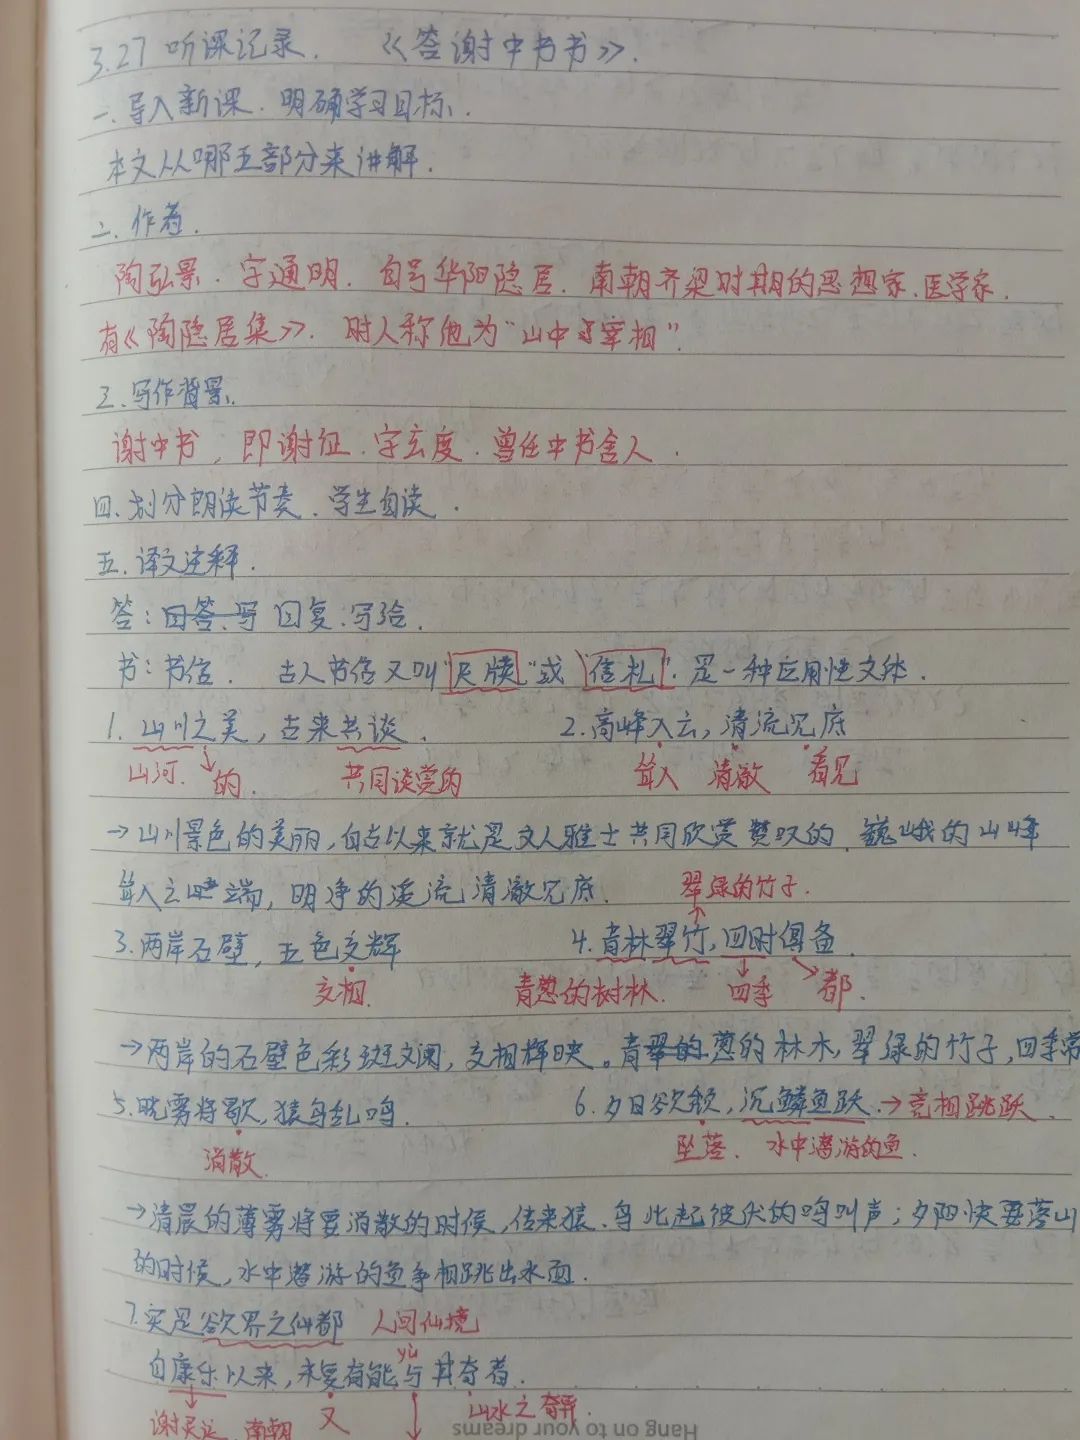 3.27 听课记录. 《答谢中书书》.
一、导入新课. 明确学习目标.
本文从哪五部分来讲解.
二、作者.
陶弘景. 字通明. 自号华阳隐居. 南朝齐梁时期的思想家、医学家.
有《陶隐居集》. 时人称他为"山中宰相".
三、写作背景.
谢中书, 即谢征. 字玄度. 曾任中书舍人.
四、划分朗读节奏. 学生自读.
五、译文注释.
答: 回答.写 回复.写给.
书: 书信. 古人书信又叫"尺牍"或"信札". 是一种应用性文体.
1. 山川之美, 古来共谈. 2. 高峰入云, 清流见底
山河. 的. 共同谈赏的 耸入 清澈 看见
→山川景色的美丽, 自古以来就是文人雅士共同欣赏赞叹的. 巍峨的山峰
耸入云端, 明净的溪流清澈见底. 翠绿的竹子.
3. 两岸石壁, 五色交辉 4. 青林翠竹, 四时俱备.
交相. 青葱的树林. 四季 都.
→两岸的石壁色彩斑斓, 交相辉映。青翠的葱的林木, 翠绿的竹子, 四季常
5. 晓雾将歇, 猿鸟乱鸣. 6. 夕日欲颓, 沉鳞鱼跃.→竞相跳跃.
消散. 坠落. 水中潜游的鱼.
→清晨的薄雾将要消散的时候, 传来猿、鸟此起彼伏的鸣叫声; 夕阳快要落山
的时候, 水中潜游的鱼争相跳出水面.
7. 实是欲界之仙都 人间仙境
yù
自康乐以来, 未复有能与其奇者.
谢灵运. 南朝 又 山水之奇异.
Hang on to your dreams